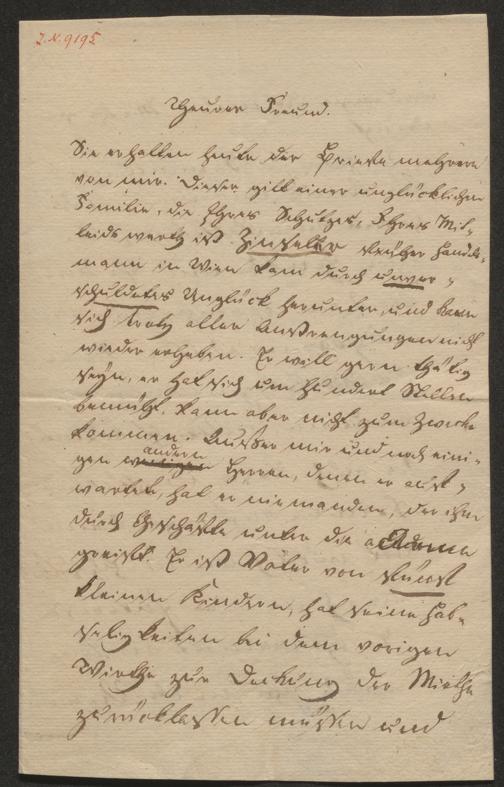 I.N. 9195
Theurer Freund.
Sie erhalten heute der Briefe mehrere
von mir. Dieser gilt einer unglücklichen
Familie, die Ihres Schutzes, Ihres Mit-
leids werth ist. früher Handels-
mann in Wien kam durch unver-
schuldetes Unglück herunter, und kann
sich trotz aller Anstrengungen nicht
wieder erheben. Er will gern thätig
seyn, er hat sich um hundert Stellen
bemüht, kann aber nicht zum Zwecke
kommen. Außer mir und noch eini-
gen andern Herren, denen er auf-
wartet, hat er niemanden, der ihm
durch Geschäfte unter die Arme
greift. Er ist Vater von fünf
kleinen Kindern, hat seine Hab-
seligkeiten bei dem vorigen
Wirthe zur Deckung der Miethe
zurücklassen müssen und